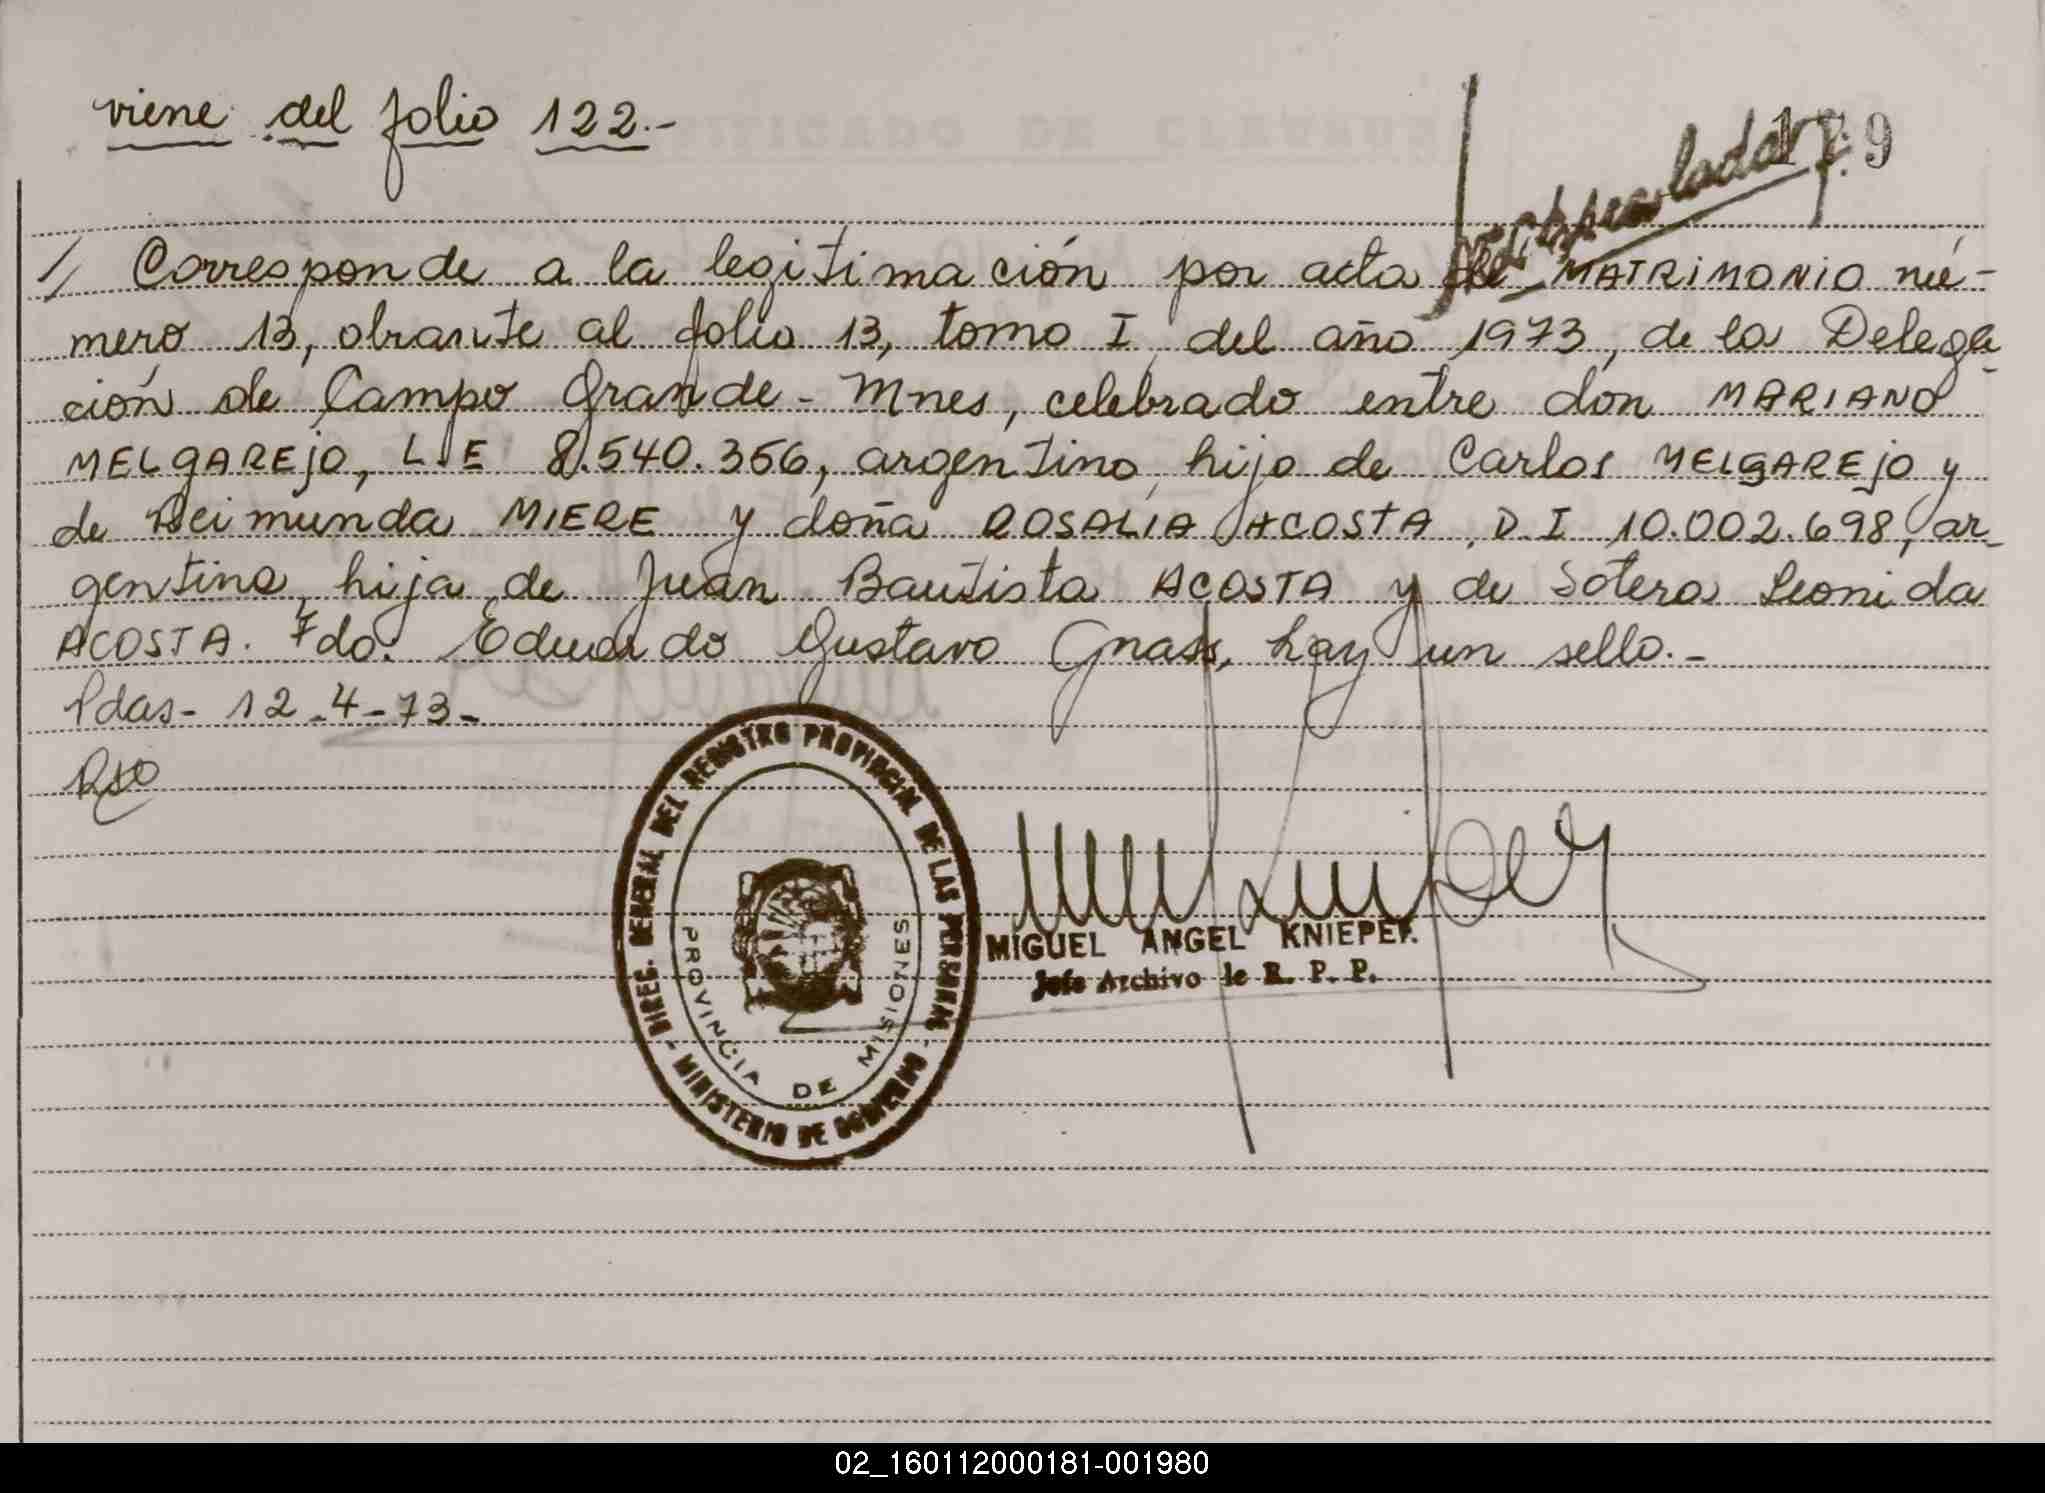 viene del folio 122.-
1/ Corresponde a la legitimación por acta de MATRIMONIO nú-
mero 13, obrante al folio 13, tomo I, del año 1973, de la Delega-
ción de Campo Grande - Mnes, celebrado entre don MARIANO
MELGAREJO, L.E 8.540.356, argentino, hijo de Carlos MELGAREJO y
de Reimunda MIERE y doña ROSALIA ACOSTA, D.I 10.002.698, ar-
gentina, hija de Juan Bautista ACOSTA y de Sotera Leonida
ACOSTA. Fdo. Eduardo Gustavo Gnass, hay un sello.-
Pdas- 12-4-73-
DIREC. GENERAL DEL REGISTRO PROVINCIAL DE LAS PERSONAS - MINISTERIO DE GOBIERNO -
PROVINCIA DE MISIONES
MIGUEL ANGEL KNIEPER
Jefe Archivo de R. P. P.
02_160112000181-001980